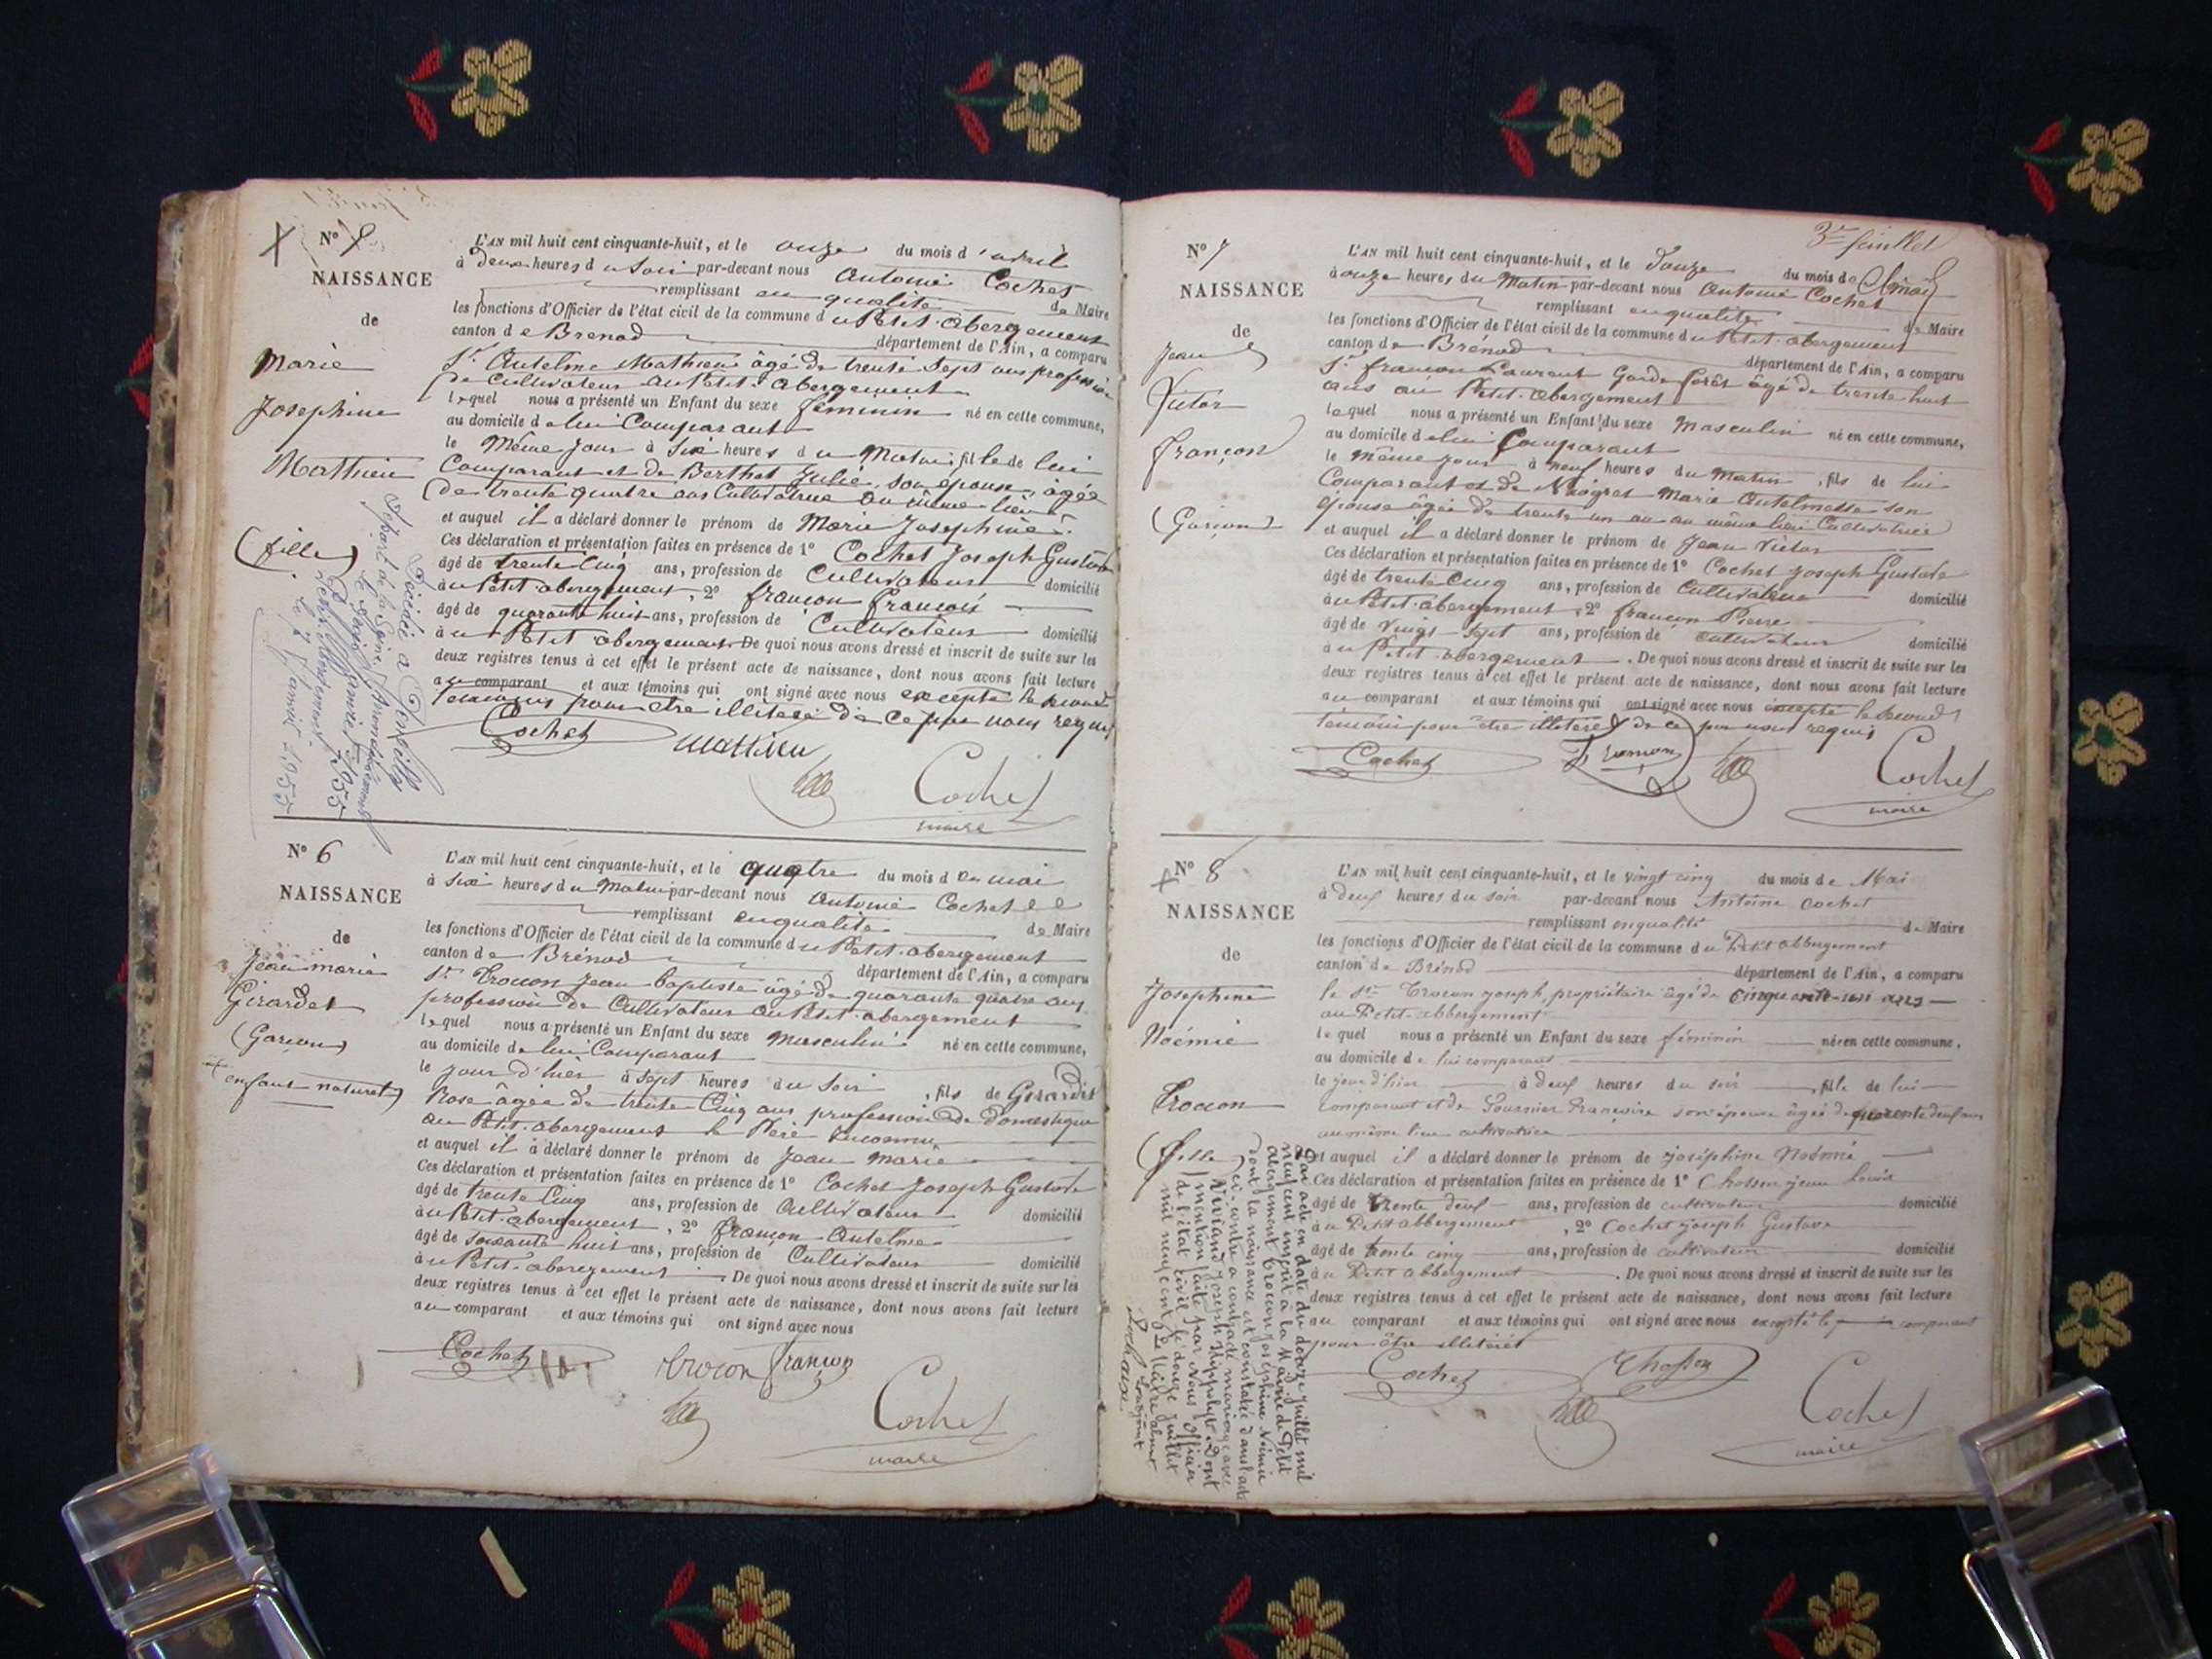 N° 5
NAISSANCE
de
Marie
Josephine
Mathieu
(fille)
L'AN mil huit cent cinquante-huit, et le onze du mois d'avril
à deux heures du Soir par-devant nous Antoine Cochet
remplissant en qualité de Maire
les fonctions d'Officier de l'état civil de la commune du Petit-abergement
canton de Brenod département de l'Ain, a comparu
Sr Antelme Mathieu âgé de trente sept ans profession
de Cultivateur au Petit-abergement
lequel nous a présenté un Enfant du sexe féminin né en cette commune,
au domicile de lui Comparant
le même jour à six heures du Matin, fille de lui
Comparant et de Berthet Julie, son épouse, âgée
de trente quatre ans Cultivatrice au même lieu
et auquel il a déclaré donner le prénom de Marie Josephine
Ces déclaration et présentation faites en présence de 1° Cochet Joseph Gustave
âgé de trente Cinq ans, profession de Cultivateur domicilié
au Petit-abergement, 2° françon françois
âgé de quarante huit ans, profession de Cultivateur domicilié
au Petit abergement De quoi nous avons dressé et inscrit de suite sur les
deux registres tenus à cet effet le présent acte de naissance, dont nous avons fait lecture
au comparant et aux témoins qui ont signé avec nous excepté le second
témoins pour être illiteré de ce par nous requis
Cochet Mathieu
Cochet
maire
Décédée à
le 7 Janvier 1955
N° 6
NAISSANCE
de
Jean marie
Girardet
(Garçon)
enfant naturel)
L'AN mil huit cent cinquante-huit, et le quatre du mois de mai
à six heures du Matin par-devant nous Antoine Cochet
remplissant en qualité de Maire
les fonctions d'Officier de l'état civil de la commune du Petit-abergement
canton de Brénod département de l'Ain, a comparu
Sr Trocon Jean baptiste âgé de quarante quatre ans
profession de Cultivateur au Petit-abergement
lequel nous a présenté un Enfant du sexe masculin né en cette commune,
au domicile de lui Comparant
le jour d'hier à sept heures du Soir, fils de Girardet
Rose âgée de trente Cinq ans profession de domestique
au Petit-abergement le Père inconnu
et auquel il a déclaré donner le prénom de Jean marie
Ces déclaration et présentation faites en présence de 1° Cochet Joseph Gustave
âgé de trente Cinq ans, profession de Cultivateur domicilié
au Petit-abergement, 2° françon Antelme
âgé de soixante huit ans, profession de Cultivateur domicilié
au Petit-aberegement. De quoi nous avons dressé et inscrit de suite sur les
deux registres tenus à cet effet le présent acte de naissance, dont nous avons fait lecture
au comparant et aux témoins qui ont signé avec nous
Cochet trocon françon
Cochet
maire
3e feuillet
N° 7
NAISSANCE
de
Jean
Victor
françon
(Garçon)
L'AN mil huit cent cinquante-huit, et le douze du mois de mai
à onze heures du Matin par-devant nous Antoine Cochet
remplissant en qualité de Maire
les fonctions d'Officier de l'état civil de la commune du Petit-abergement
canton de Brénod département de l'Ain, a comparu
Sr françon Laurent Garde forêt âgé de trente huit
ans au Petit-abergement
lequel nous a présenté un Enfant du sexe Masculin né en cette commune,
au domicile de lui Comparant
le même jour à neuf heures du matin, fils de lui
Comparant et de Marie Antelmette son
épouse âgée de trente un an au même lieu Cultivatrice
et auquel il a déclaré donner le prénom de Jean Victor
Ces déclaration et présentation faites en présence de 1° Cochet Joseph Gustave
âgé de trente Cinq ans, profession de Cultivateur domicilié
au Petit-abergement, 2° françon Pierre
âgé de vingt-sept ans, profession de Cultivateur domicilié
au Petit-abergement. De quoi nous avons dressé et inscrit de suite sur les
deux registres tenus à cet effet le présent acte de naissance, dont nous avons fait lecture
au comparant et aux témoins qui ont signé avec nous excepté le second
témoin pour être illiteré de ce par nous requis
Cochet françon
Cochet
maire
N° 8
NAISSANCE
de
Josephine
Noémie
Trocon
(fille)
L'AN mil huit cent cinquante-huit, et le vingt cinq du mois de Mai
à deux heures du soir par-devant nous Antoine Cochet
remplissant en qualité de Maire
les fonctions d'Officier de l'état civil de la commune du Petit abbergement
canton de Brénod département de l'Ain, a comparu
le Sr Trocon joseph, propriétaire âgé de cinquante-un ans
au Petit-abbergement
lequel nous a présenté un Enfant du sexe féminin né en cette commune,
au domicile de lui comparant
le jour d'hier à deux heures du soir, fille de lui
comparant et de françoise son épouse âgée de quarante deux ans
au même lieu cultivatrice
et auquel il a déclaré donner le prénom de joséphine Noémie
Ces déclaration et présentation faites en présence de 1° Chosson jean louis
âgé de trente deux ans, profession de cultivateur domicilié
au Petit abbergement, 2° Cochet joseph Gustave
âgé de trente cinq ans, profession de cultivateur domicilié
au Petit abbergement. De quoi nous avons dressé et inscrit de suite sur les
deux registres tenus à cet effet le présent acte de naissance, dont nous avons fait lecture
au comparant et aux témoins qui ont signé avec nous excepté le comparant
pour être illitéré
Cochet Chosson
Cochet
maire
Par acte en date du douze juillet mil
neuf cent inscrit à la Mairie de Petit
abergement Trocon Joséphine Noémie
dont la naissance est constatée dans l'acte
ci-contre a contracté mariage avec
Joseph Hippolyte. Dont
mention faite par Nous officier
de l'état civil le douze juillet
mil neuf cent